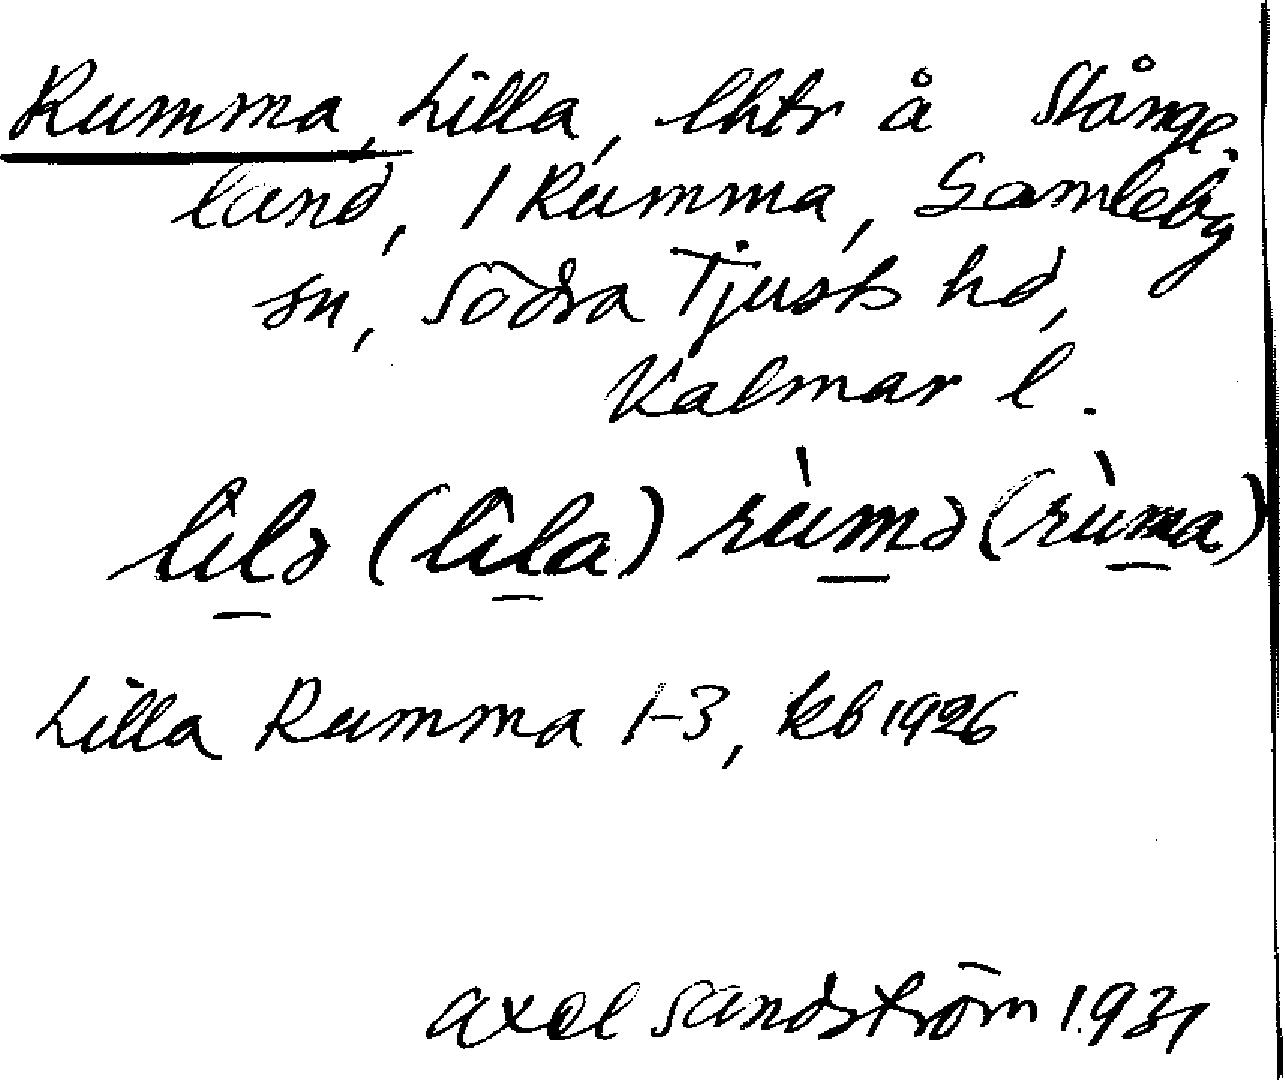 Rumma, Lilla, lhtr å Stånge-
land, 1 Rumma, Gamleby
sn, Södra Tjusts hd,
Kalmar l.
lìlə (lìla) rùmə (rùma)
Lilla Rumma 1-3, kb 1926
Axel Sandström 1931